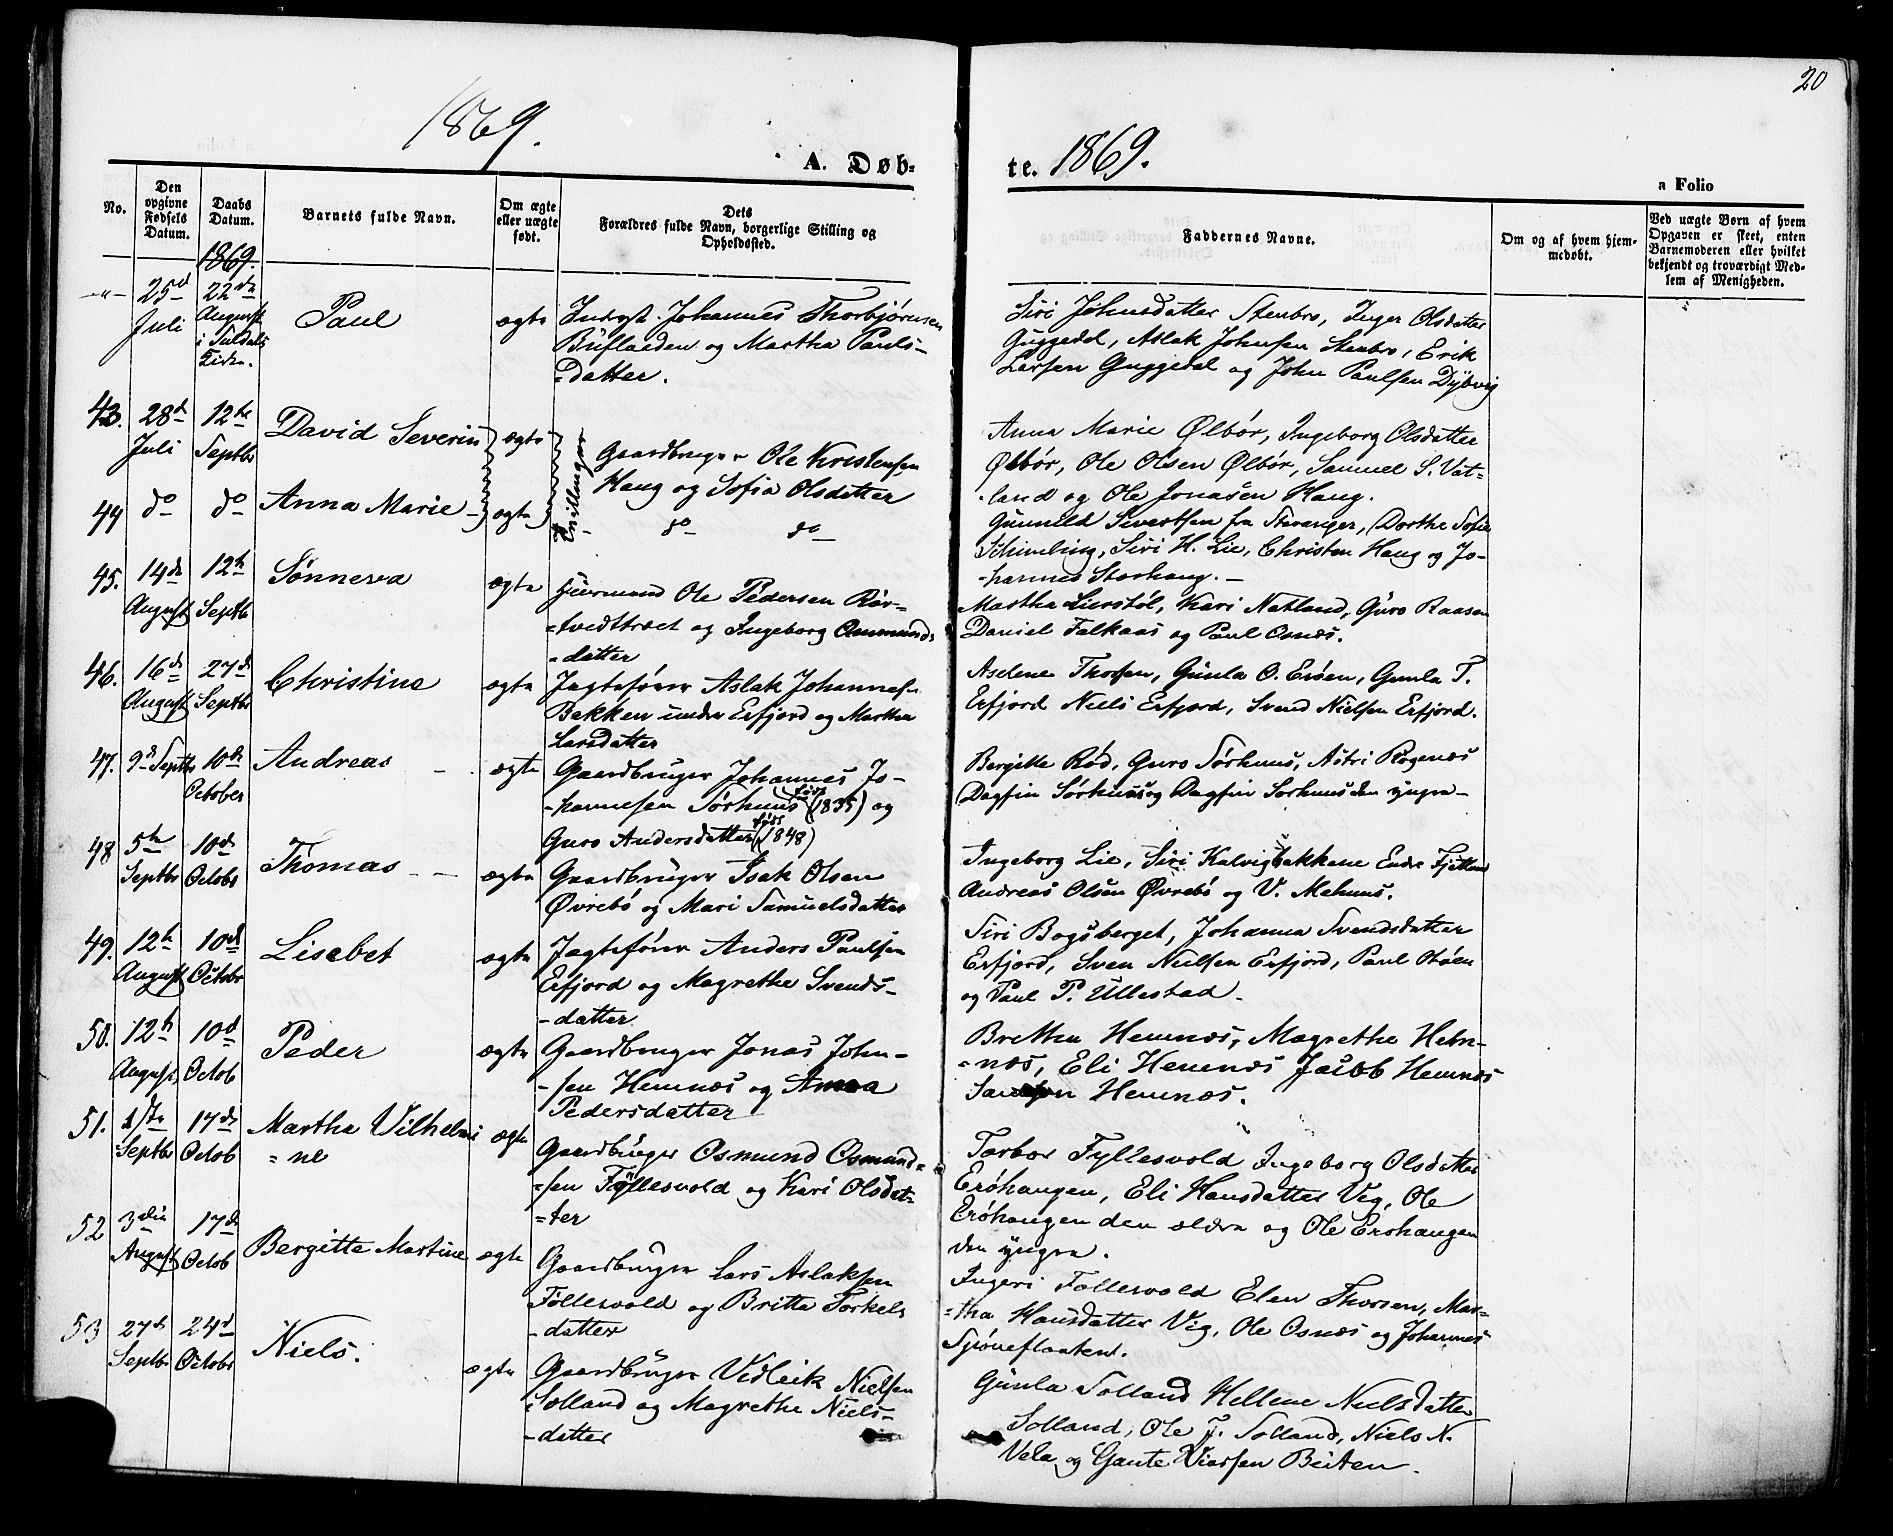 20
1869.
A. Døb-
te. 1869.
a Folio
No.
Den
opgivne
Fødsels
Datum.
Daabs
Datum.
Barnets fulde Navn.
Om ægte
eller uægte
født.
Dets
Forældres fulde Navn, borgerlige Stilling og
Opholdssted.
Faddernes Navne.
Om og af hvem hjem-
medøbt.
Ved uægte Børn af hvem
Opgaven er skeet, enten
Barnemoderen eller hvilket
bekjendt og troværdigt Med-
lem af Menigheden.
1869.
—"— 25d Juli
22de August i Suldals Kirke.
Paul
ægte
Johannes Thorbjørnsen
og Martha Pauls-
=datter.
Siri Johnsdatter Stenbro, Inger Olsdatter
Guggedal, Aslak Johnsen Stenbro, Erik
Larsen Guggedal og John Paulsen Dybvig
43. 28d Juli
12te Septbr
David Severin
ægte
Tvillinger
Gaardbruger Ole Kristensen
Haug og Sofia Olsdatter
Anna Marie Ølbør, Ingeborg Olsdatter
Ølbør, Ole Olsen Ølbør, Samuel S. Vat-
-land og Ole Jonasen Haug.
44 do do
Anna Marie
ægte
do do
Gunnild Sivertsen fra Stavanger, Dorthe Sofie
Schimling, Siri H. Lie, Christen Haug og Jo-
-hannes Storhaug.
45. 14de August
12te Septbr
Sønneva
ægte
Huusmand Ole Pedersen Rør-
=tvedttræet og Ingeborg Ammunds
=datter
Martha Lierstøl, Kari Natland, Guro Raasen
Daniel Falkaas og Paul Osnæs.
46. 16de August
27de Septbr
Christine
ægte
Jagtefører Aslak Johannes-
Bakken under Erfjord og Martha
Larsdatter
Aselene Thorsen, Gunla O. Erøen, Gunla T.
Erfjord Niels Erfjord, Svend Nielsen Erfjord.
47. 9d Septbr
10de October
Andreas
ægte
Gaardbruger Johannes Jo-
-hannesen Sørhuus (født 1835) og
Guro Andersdatter (født 1848)
Bergitte Rød, Guro Sørhuus, Astri Røgenæs
Dagfin Sørhuus og Dagfin Sørhuus den yngre
48 5te Septbr
10de Octobr
Thomas
ægte
Gaardbruger Isak Olsen
Øvrebø og Mari Samuelsdatter
Ingeborg Lie, Siri Kalvigbakkene Endre
Andreas Olsen Øvrebø og V. Mehuus.
49. 12te August
10de Octobr
Lisebet
ægte
Jagtefører Anders Paulsen
Erfjord og Magrethe Svends-
-datter
Siri Bogsberget, Johanna Svendsdatter
Erfjord, Sven Nielsen Erfjord, Paul Støen
og Paul P. Ullestad.
50. 12te August
10d Octob
Peder
ægte
Gaardbruger Jonas John-
-sen Hemnæs og Anna
Pedersdatter
Bretha Hemnæs, Magrethe Hem-
-næs, Eli Hemnæs Jacob Hemnæs
Samson Hemnæs.
51. 1ste Septbr
17de Octob
Martha Vilhelmi
=ne
ægte
Gaardbruger Osmund Osmund=
=sen Føllesvold og Kari Olsdat-
=ter
Torbor Fyllesvold Ingeborg Olsdatter
Erøhaugen, Eli Hansdatter Vig, Ole
Erøhaugen den ældre og Ole Erøhaugen
den yngre.
52 3die August
17de Octob
Bergitta Martine
ægte
Gaardbruger Lars Aslaksen
Føllesvold og Britta Torkels
-datter
Ingeri Følllesvold Elen Thorsen, Mar=
=tha Hansdatter Vig, Ole Osnæs og Johannes
53 27de Septbr
24d Octobr
Niels.
ægte
Gaardbruger Vedleik Nielsen
Solland og Magrethe Niels-
-datter
Gunla Solland Hellene Nielsdatter
Solland, Ole J. Solland, Niels N.
Vela og Gaute Beiten.